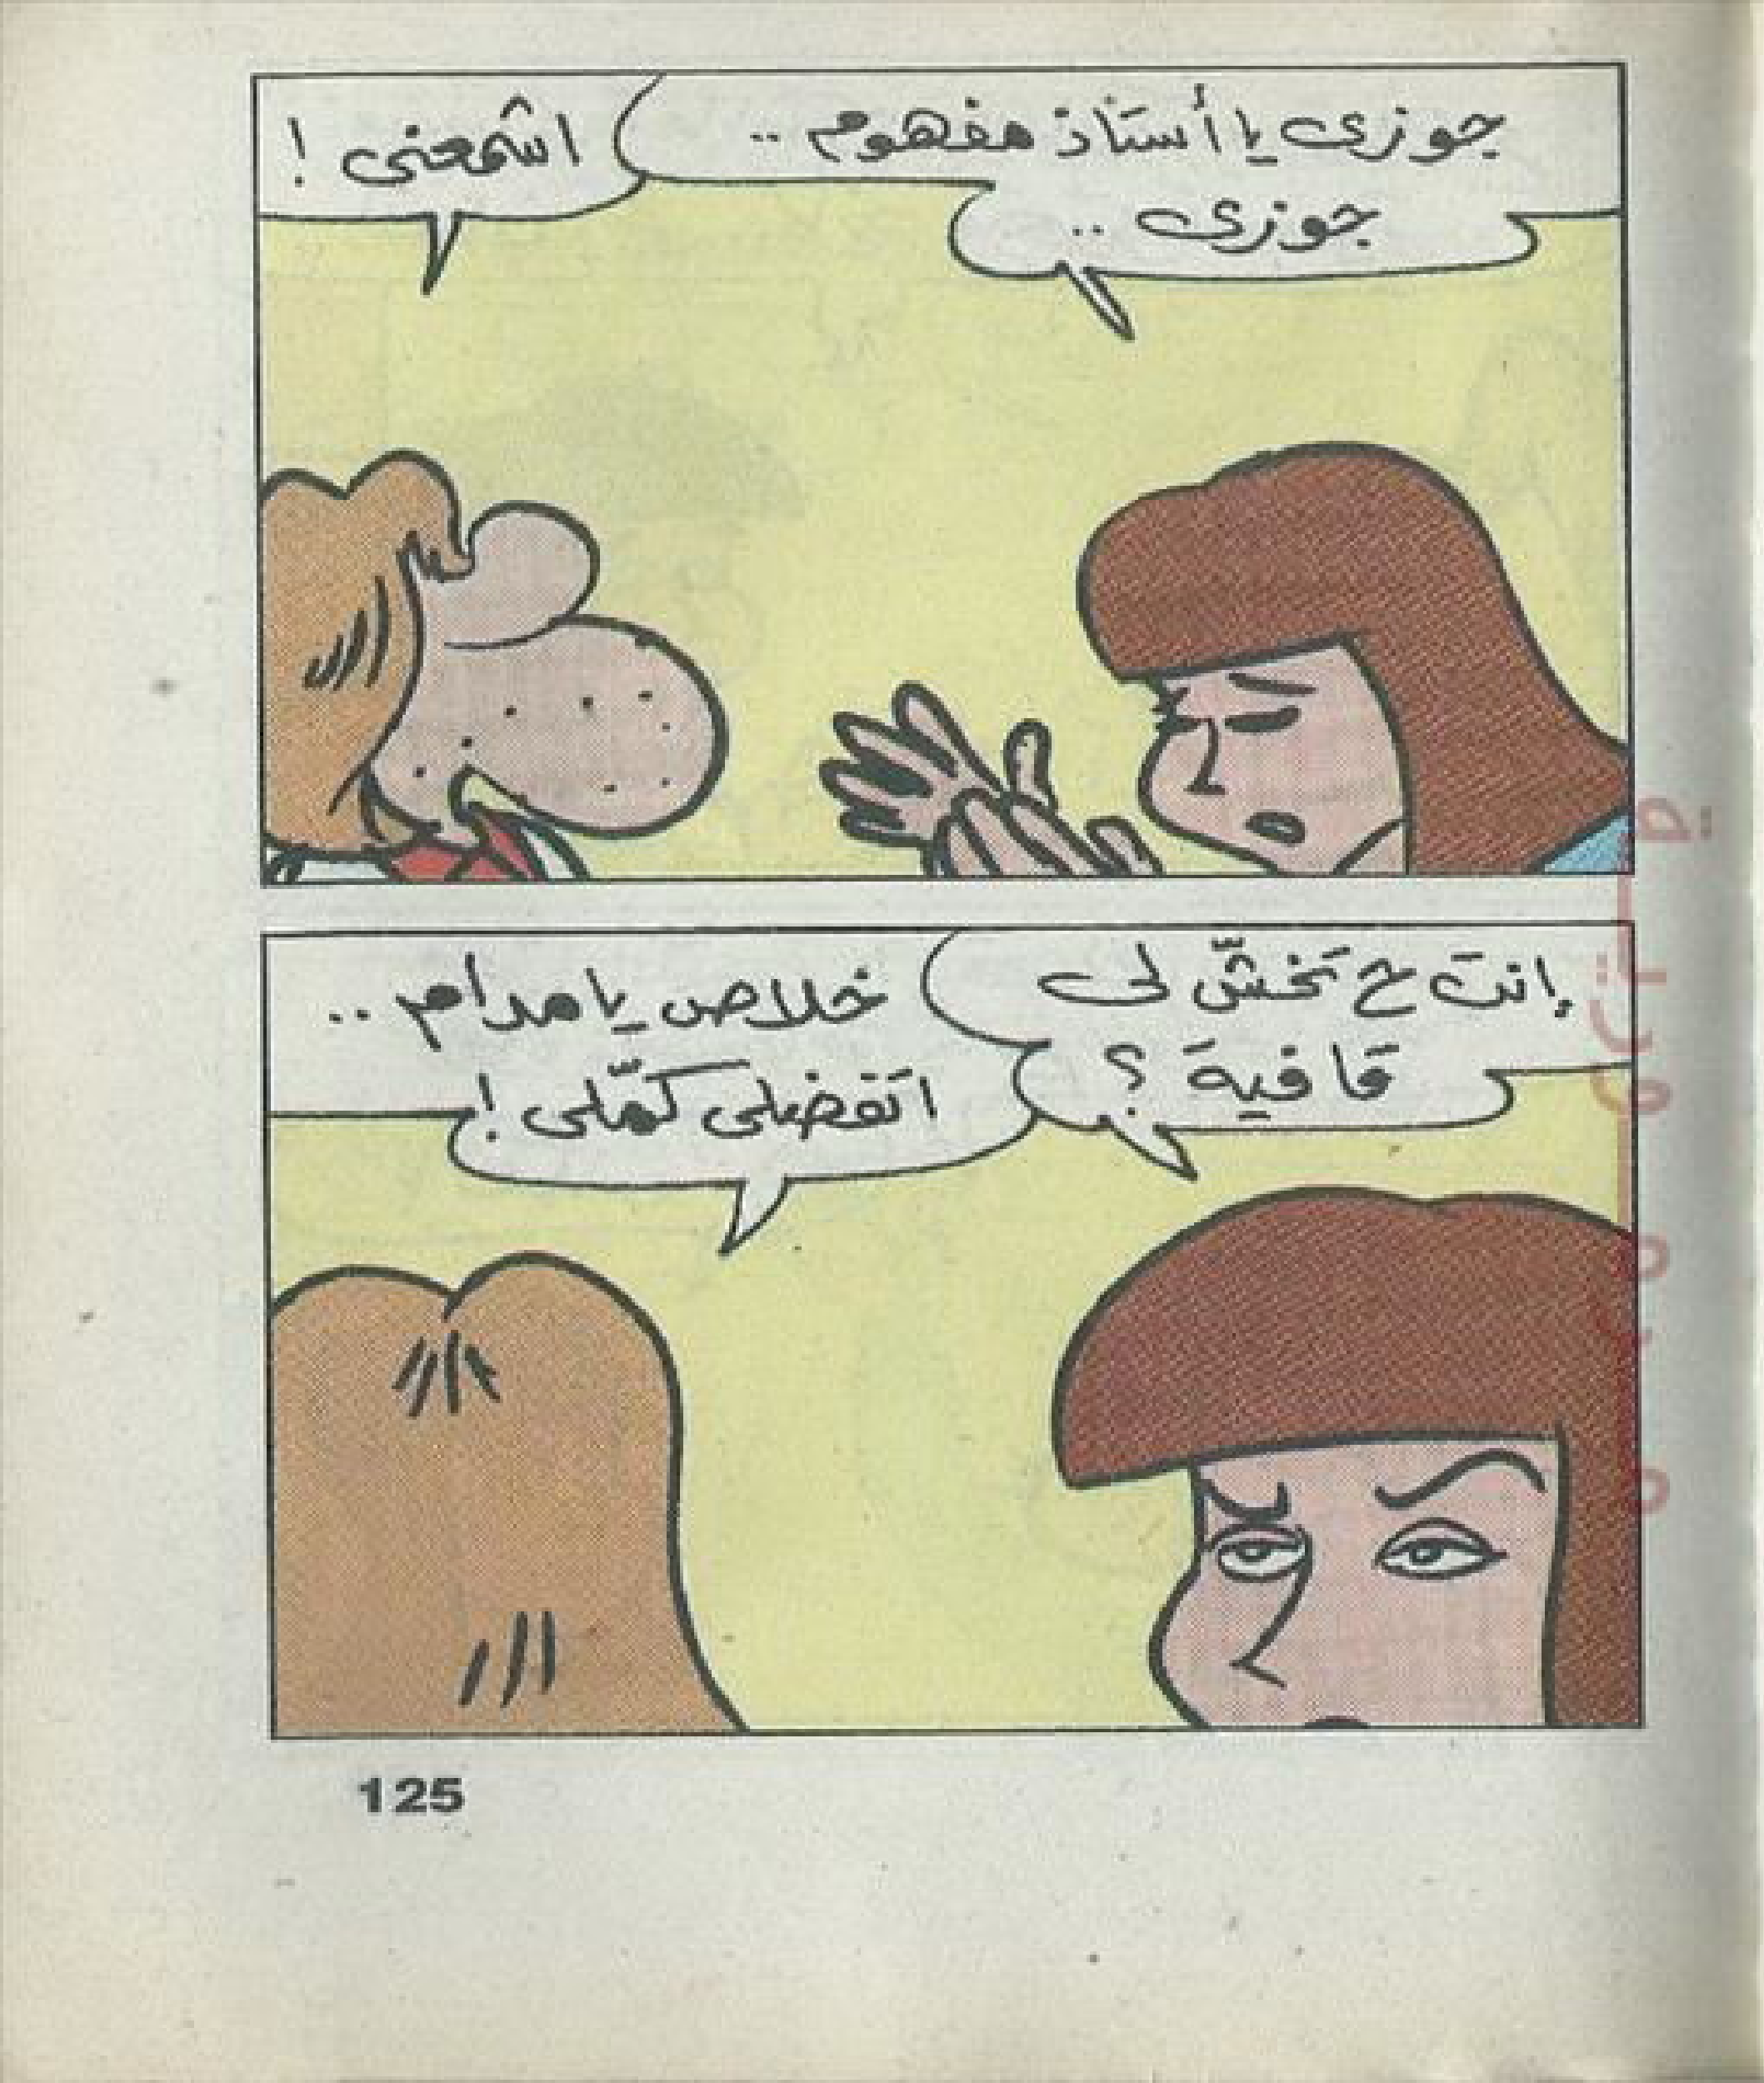 جوزى يا أستاذ مفهوم ..
جوزى ..
اشمعنى !
إنت ح تخشّ لى
قافية ؟
خلاص يا مدام ..
اتفضلى كمّلى !
125